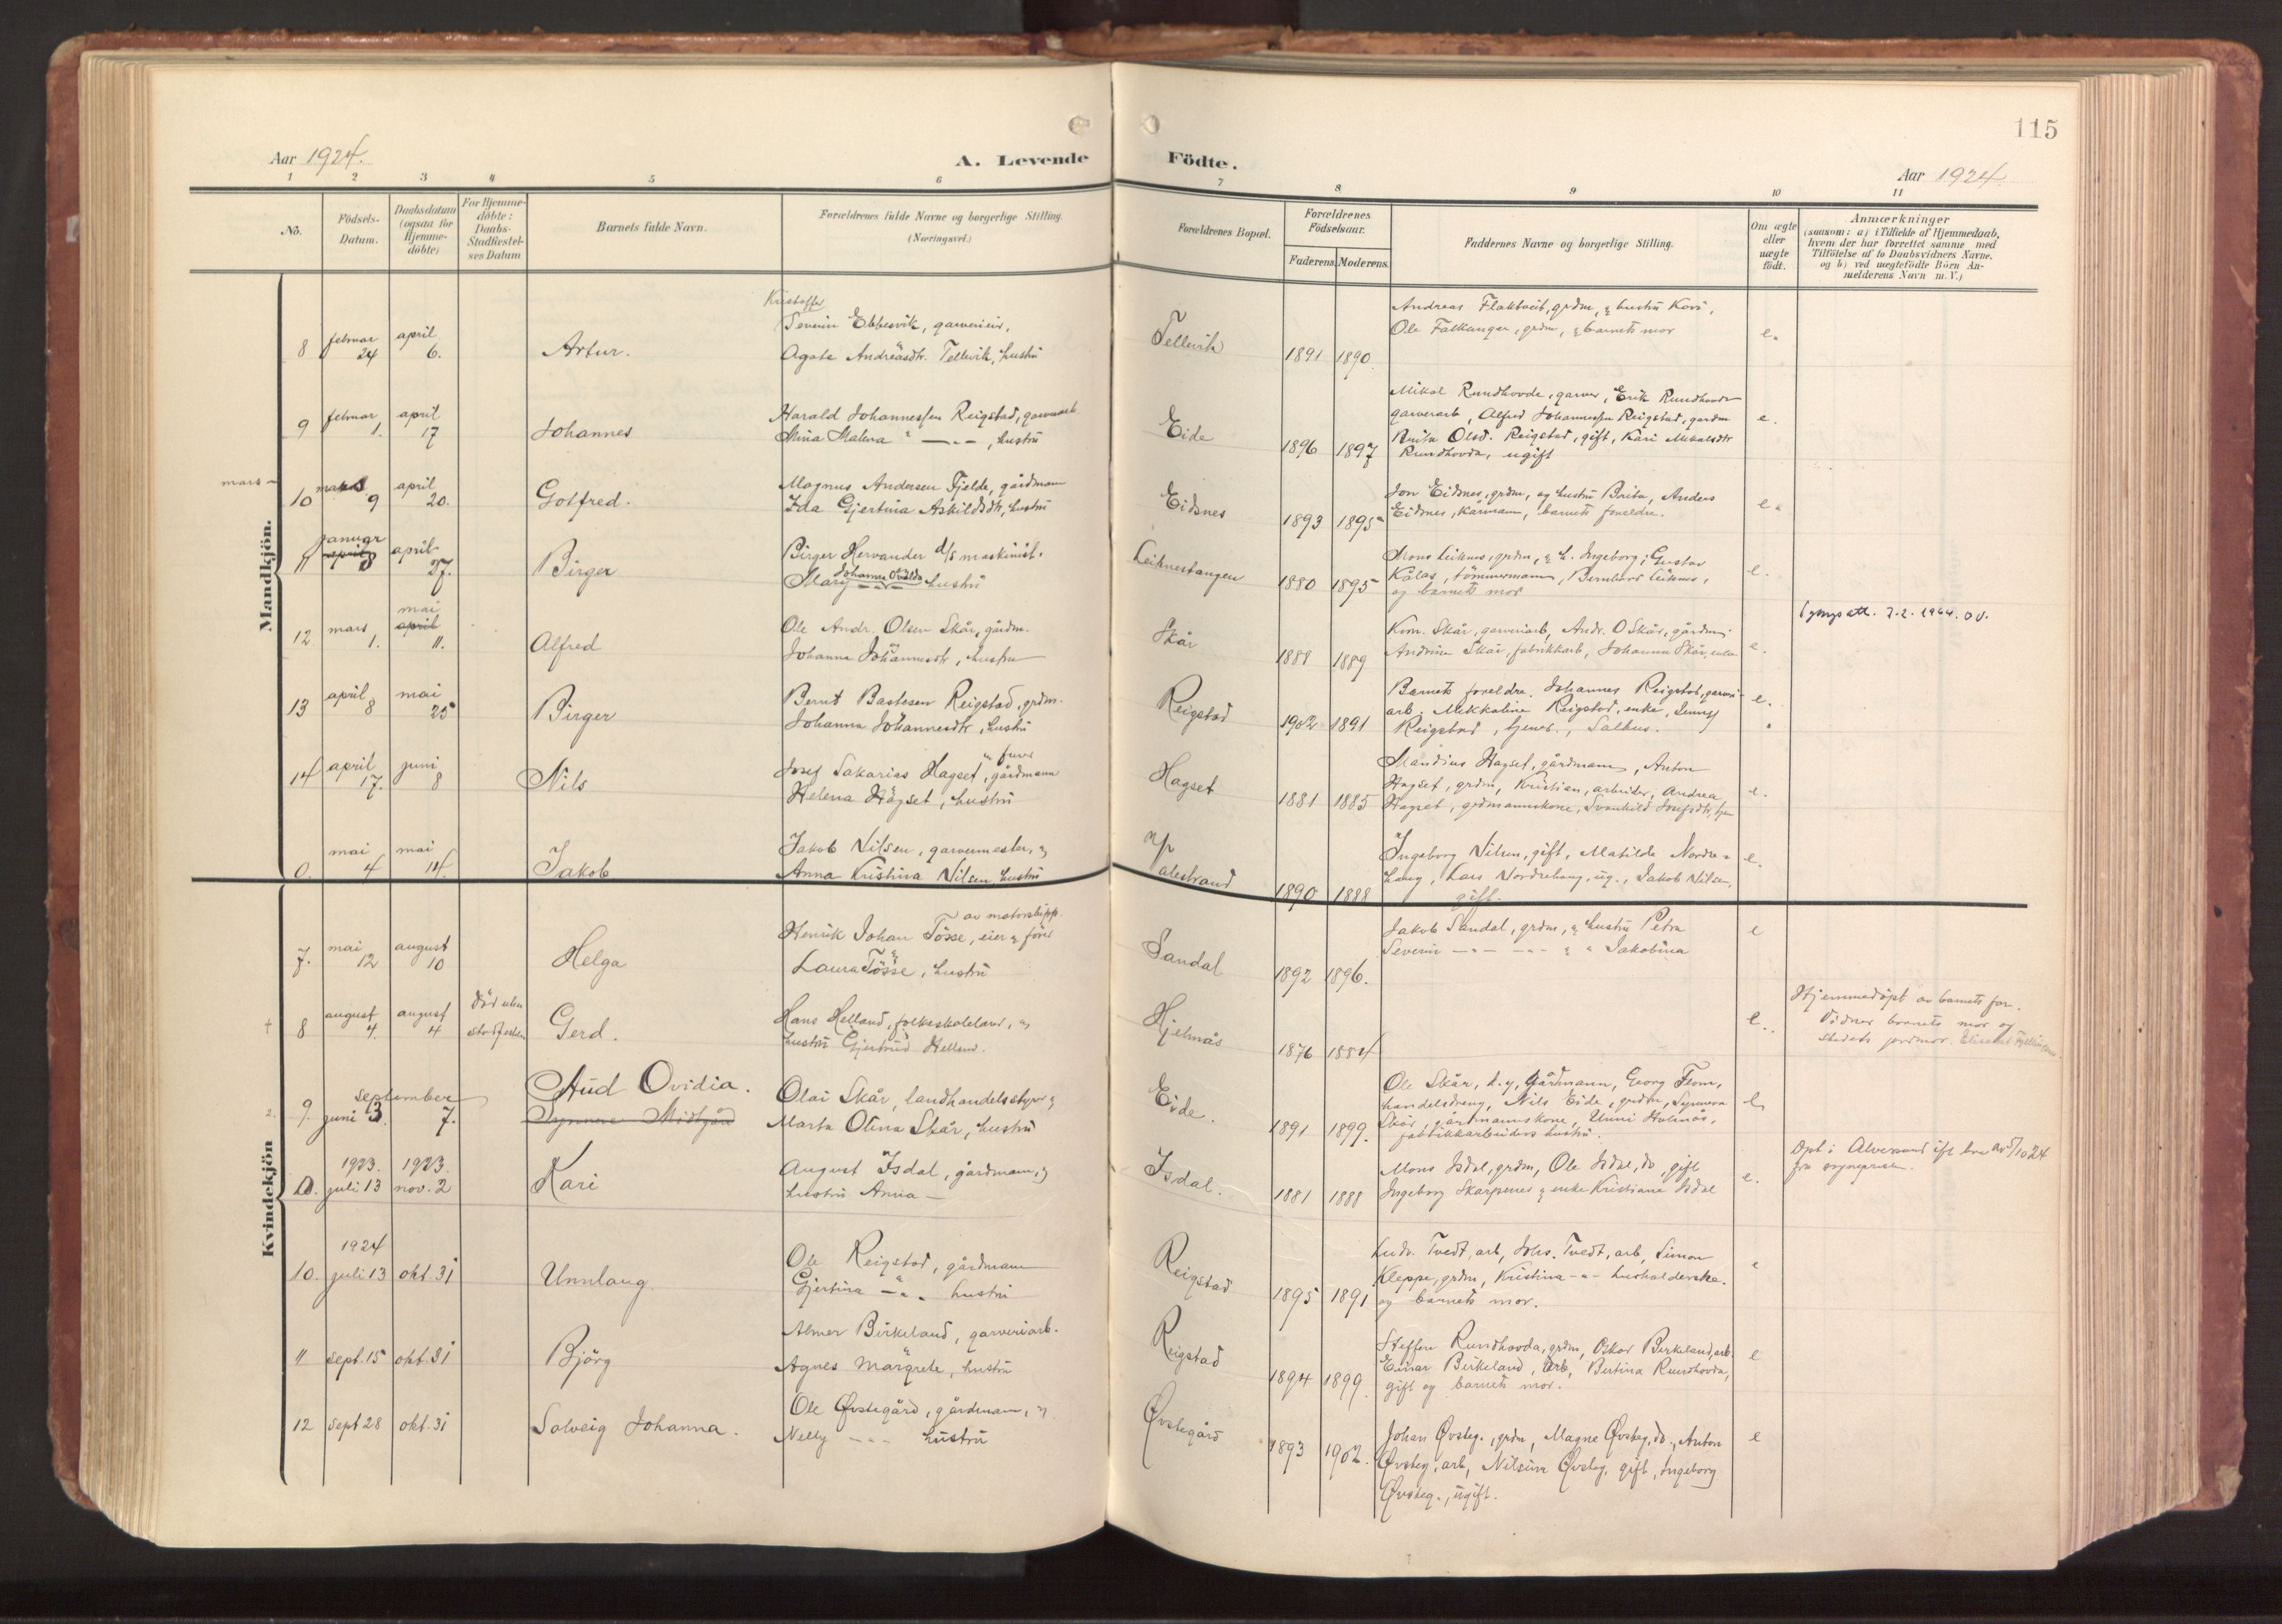 115
Aar 1924.
A. Levende Födte.
Aar 1924
1 2 3 4 5 6 7 8 9 10 11
No.
Födsels-Datum.
Daabsdatum (ogsaa for Hjemme-döbte)
For Hjemme-döbte: Daabs-Stadfæstel-ses Datum
Barnets fulde Navn.
Forældrenes fulde Navne og borgerlige Stilling.
(Næringsvei.)
Forældrenes Bopæl.
Forældrenes Födselsaar.
Faderens. Moderens.
Faddernes Navne og borgerlige Stilling.
Om ægte eller uægte födt.
Anmærkninger
(saasom: a) i Tilfælde af Hjemmedaab,
hvem der har forrettet samme med
Tilföielse af to Daabsvidners Navne.
og b) ved uegtefödte Börn An-
melderens Navn m. V.)
Mandkjön.
Kristoffer
8 februar 24 april 6. Artur. Severin Ebbesvik, garveriarb.
Agate Andreasdtr. Tellevik, hustru
Tellevik 1891 1890.
Andreas Flaktveit, grdm, & hustru Kari,
Ole Falkanger, grdm, & barnets mor
e.
9 februar 1. april 17 Johannes Harald Johannessen Reigstad, garveriarb.
Mina Malena " —"— , hustru
Eide 1896 1897
Mikal Rundhovde, garver, Erik Rundhovde
garverarb, Alfred Johannessen Reigstad, gardm
Brita Olsd. Reigstad, gift, Kari Mikalsdtr
Rundhovda, ugift
e.
mars
10 mars 9 april 20. Gotfred. Magnus Andersen Fjelde, gårdmann
Ida Gjertina Askildsdtr, hustru
Eidsnes 1893 1895
Jon Eidsnes, grdm, og hustru Brita, Anders
Eidsnes, kårmann, barnets foreldre.
e.
11 januar april 8 april 27. Birger Birger Hervander d/s maskinist.
Mary Johanna Ovalda hustru
Leiknestangen 1880 1895
Mons Leiknes, grdm, & h. Ingeborg; Gustav
Kålås, tömmermann, Bernhard Leiknes,
og barnets mor
e.
12 mars 1. mai april 11. Alfred Ole Andr. Olsen Skår, gårdm.
Johanna Johannesdtr, hustru
Skår 1888 1889
Korn. Skår, garveriarb, Andr. O Skår, gårdm;
Andrine Skår, fabrikkarb, Johanna Skår, enke
e.
7.2.1964. OV.
13 april 8 mai 25 Birger Bernt Bastesen Reigstad, grdm.
Johanna Johannesdtr, hustru
Reigstad 1902 1891
Barnets foreldre. Johannes Reigstad, garveri-
arb. Mekkaline Reigstad, enke, Jenny
Reigstad, tjener., Salhus.
e.
14 april 17. juni 8 Nils Josef Sakarias Hagset, gårdmann
Helena Hagset, hustru
Hagset 1881 1885
Mandius Hagset, gårdmann, Anton
Hagset, grdm, Kristian, arbeider, Andrea
Hagset, grdmannskone, Svanhild Josefsdtr,
e.
0. mai 4 mai 14. Jakob Jakob Nilsen, garvermester, &
Anna Kristina Nilsen, hustru
Valestrand 1890 1888
Ingeborg Nilsen, gift, Matilde Nordre-
haug, Lars Nordrehaug, ug., Jakob Nilsen,
gift.
e.
Kvindekjön
7. mai 12 august 10 Helga Henrik Johan Tösse, eier & förer
av motorskipp.
Laura Tösse, hustru
Sandal 1892 1896.
Jakob Sandal, grdm, & hustru Petra
Severin —"— —"— & " Jakobina
e
†
8 august 4. august 4 Död uten stadfesten Gerd. Hans Helland, folkeskolelærer, &
hustru Gjertrud Helland.
Hjelmås 1876 1884
e.
Hjemmedöpt av barnets far.
Vidner barnets mor og
stedets jordmor.
2.
9. juni 3. september 7. Aud Ovidia.
Synnøve Midtgård
Olai Skår, landhandelsstyrer &
Marta Olina Skår, hustru
Eide. 1891 1899.
Ole Skår, d.y, Gårdmann, Georg Flom,
handelsdreng, Nils Eide, grdm, Synneva
Skår, gårdmannskone, Unni Holmås,
fabrikkarbeiders hustru.
e
0. 1923. juli 13 1923. nov. 2 Kari August Isdal, gårdmann, &
hustru Anna —
Isdal. 1881 1888
Mons Isdal, grdm, Ole Isdal, do, gift
Ingeborg Skarpenes & enke Kristiane Isdal
e.
Döpt i Alversund ifl. brev av 5/10 24
fra sogneprest.
10. 1924 juli 13 okt. 31 Unnlaug. Ole Reigstad, gårdmann
Gjertina —"— hustru
Reigstad 1895 1891
Ludv. Tvedt, arb, Johs. Tvedt, arb, Simon
Kleppe, grdm, Kristina —"— husholderske.
og barnets mor.
e
11 sept. 15 okt. 31 Björg Almer Birkeland, garveriarb.
Agnes Margrete, hustru
Reigstad 1894 1899.
Steffen Rundhovda, grdm, Oskar Birkeland, arb.
Einar Birkeland, arb, Bertina Rundhovda,
gift og barnets mor.
e
12 sept 28 okt. 31 Solveig Johanna. Ole Øvstegård, gårdmann, &
Nelly —"— hustru
Øvstegård 1893 1902.
Johan Øvsteg., grdm, Magne Øvsteg, do., Anton
Øvsteg, arb, Nilsina Øvsteg, gift, Ingeborg
Øvsteg., ugift.
e